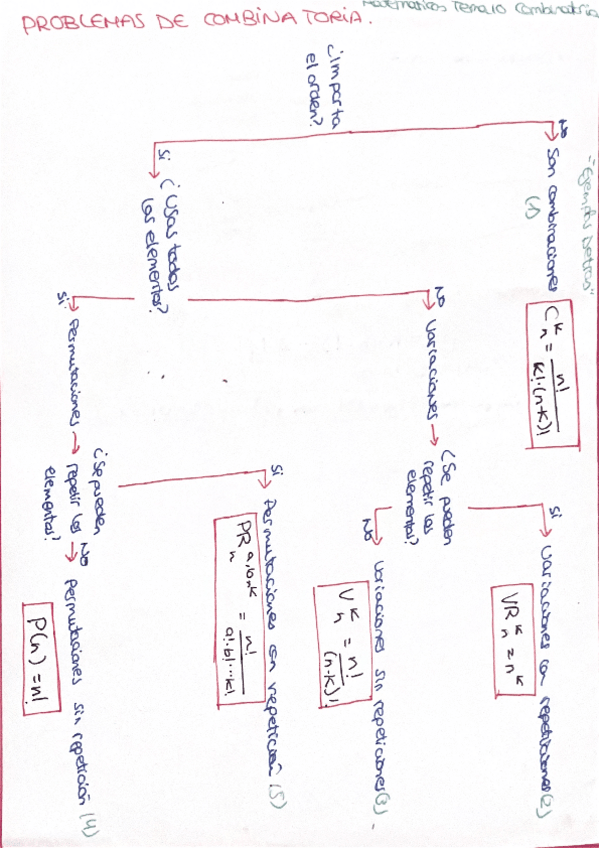 Matemáticas Tema 10 Combinatoria
PROBLEMAS DE COMBINATORIA.
"Ejemplos Detras"
¿Importa
el orden?
No
Son combinaciones
(1)
C^k_n = n! / k!·(n-k)!
Si
¿Usas todos
los elementos?
No
Variaciones
¿Se pueden
repetir los
elementos?
Si
Variaciones con repeticiones (2)
VR^k_n = n^k
No
Variaciones sin repeticiones (3)
V^k_n = n! / (n-k)!
Si
Permutaciones
¿Se pueden
repetir los
elementos?
Si
Permutaciones con repetición (5)
PR_n = n! / a!·b!···k!
No
Permutaciones sin repetición (4)
P(n) = n!